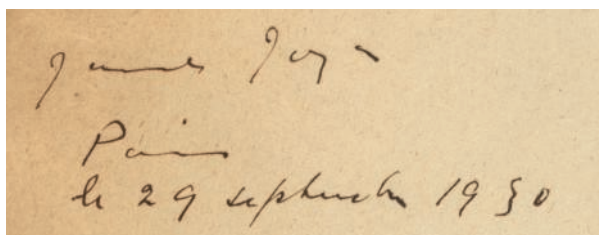 James Joyce
Paris
le 29 septembre 1930